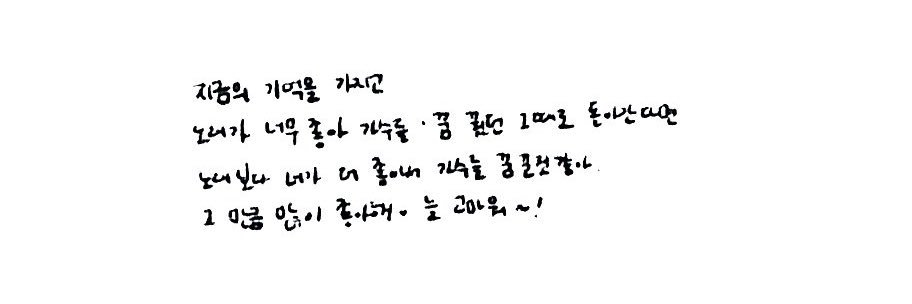 지금의 기억을 가지고
노래가 너무 좋아 가수를 꿈 꿨던 그때로 돌아간다면
노래보다 너가 더 좋아서 가수를 꿈꿀것같아.
그 만큼 많이 좋아해. 늘 고마워~!